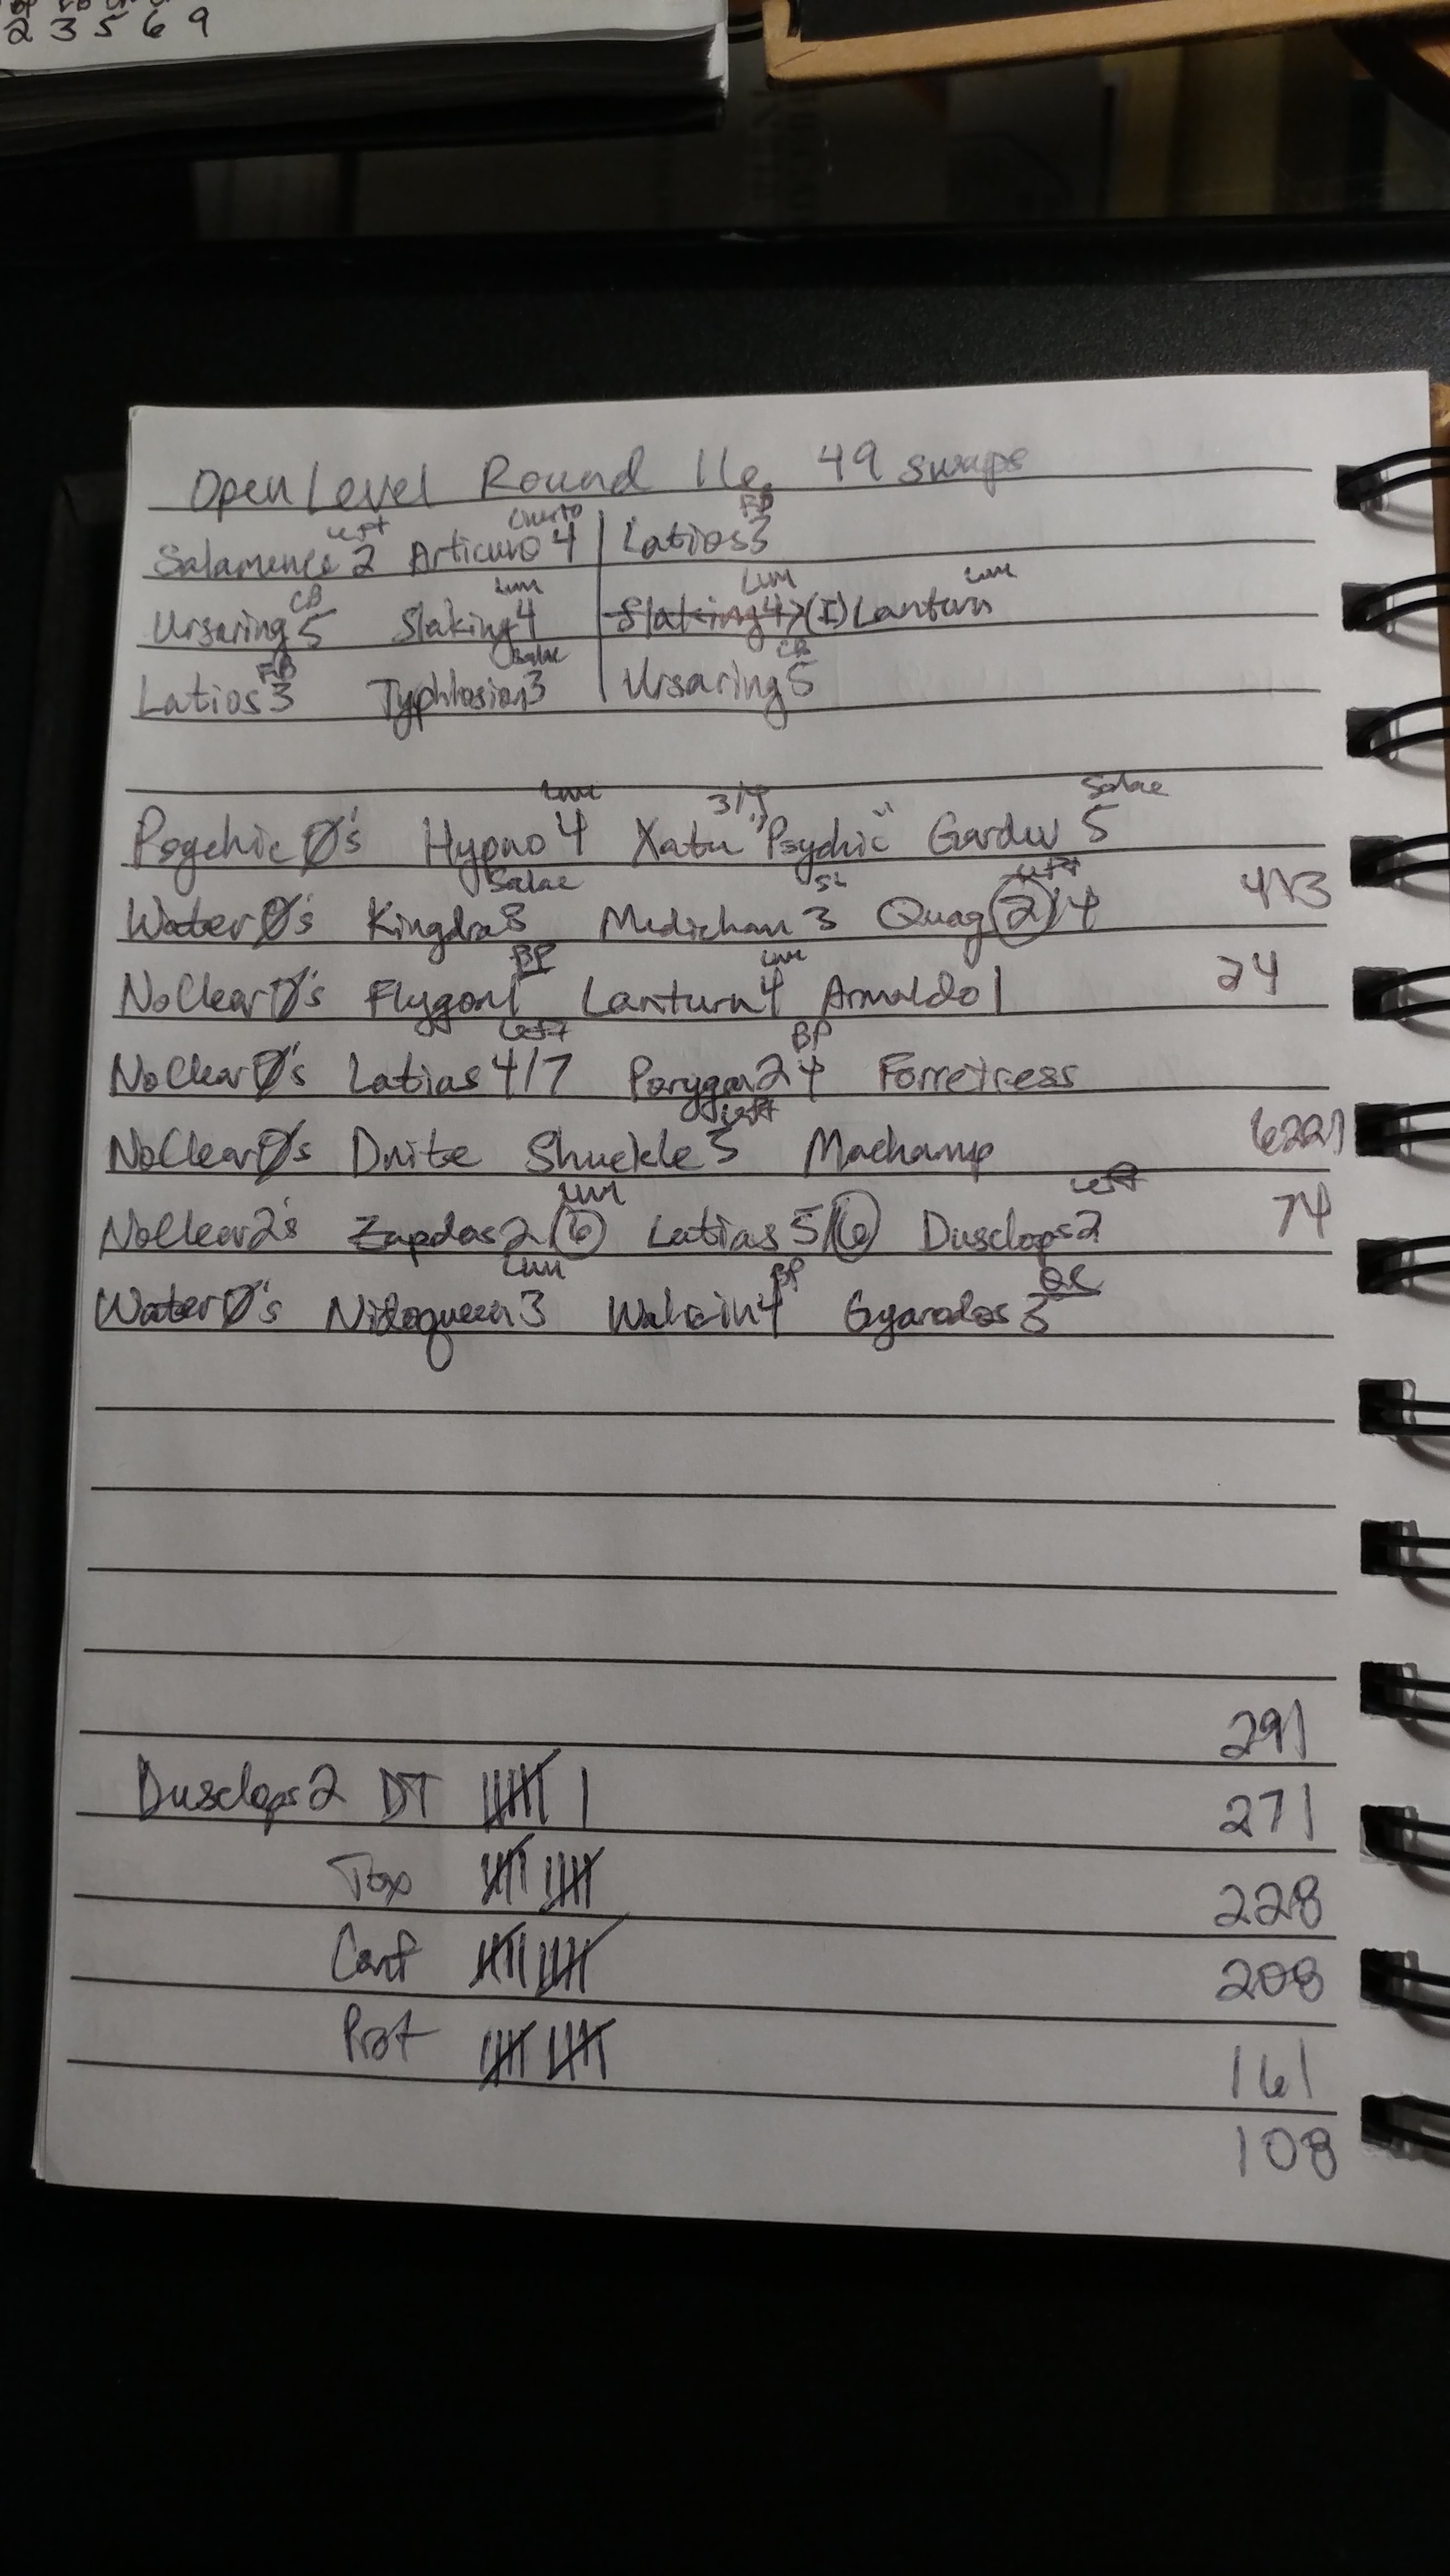 2 3 5 6 9
Open Level Round 11e. 49 swaps
Left Chesto FB
Salamence 2 Articuno 4 Latios 3
CB Lum Lum Lum
Ursaring 5 Slaking 4 Slaking 4 > (I) Lanturn
FB Salac CB
Latios 3 Typhlosion 3 Ursaring 5
Lum 3/7 Salac
Psychic Ø's Hypno 4 Xatu "Psychic" Gardev 5
Salac SL Left
Water Ø's Kingdra 8 Medicham 3 Quag 2/4 413
BP Lum
No Clear Ø's Flygon 1 Lanturn 4 Armaldo 1 24
Left BP
No Clear Ø's Latias 4/7 Porygon2 4 Forretress
Left
No Clear Ø's Dnite Shuckle 3 Machamp 6221
Lum Left
No Clear 2's Zapdos 2/6 Latias 5/6 Dusclops 2 74
Lum BP QC
Water Ø's Nidoqueen 3 Walrein 4 Gyarados 3
291
Dusclops 2 DT 271
Tox 228
Conf 208
Prot 161
108